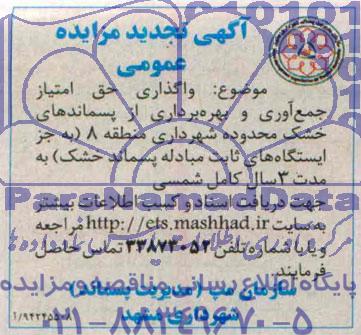 آگهی تجدید مزایده
عمومی
موضوع: واگذاری حق امتیاز
جمع‌آوری و بهره‌برداری از پسماندهای
خشک محدوده شهرداری منطقه ۸ (به جز
ایستگاه‌های ثابت مبادله پسماند خشک) به
مدت ۳ سال کامل شمسی
جهت دریافت اسناد و کسب اطلاعات بیشتر
به سایت http://ets.mashhad.ir مراجعه
و یا با شماره تلفن ۳۳۸۷۳۰۵۲ تماس حاصل
فرمایند.
سازمان مپ (مدیریت پسماند)
شهرداری مشهد
۱/۹۴۲۴۵۵۰۸
ParsNamadData
پایگاه اطلاع رسانی مناقصه و مزایده
۰۲۱-۸۸۳۴۹۶۷۰-۵